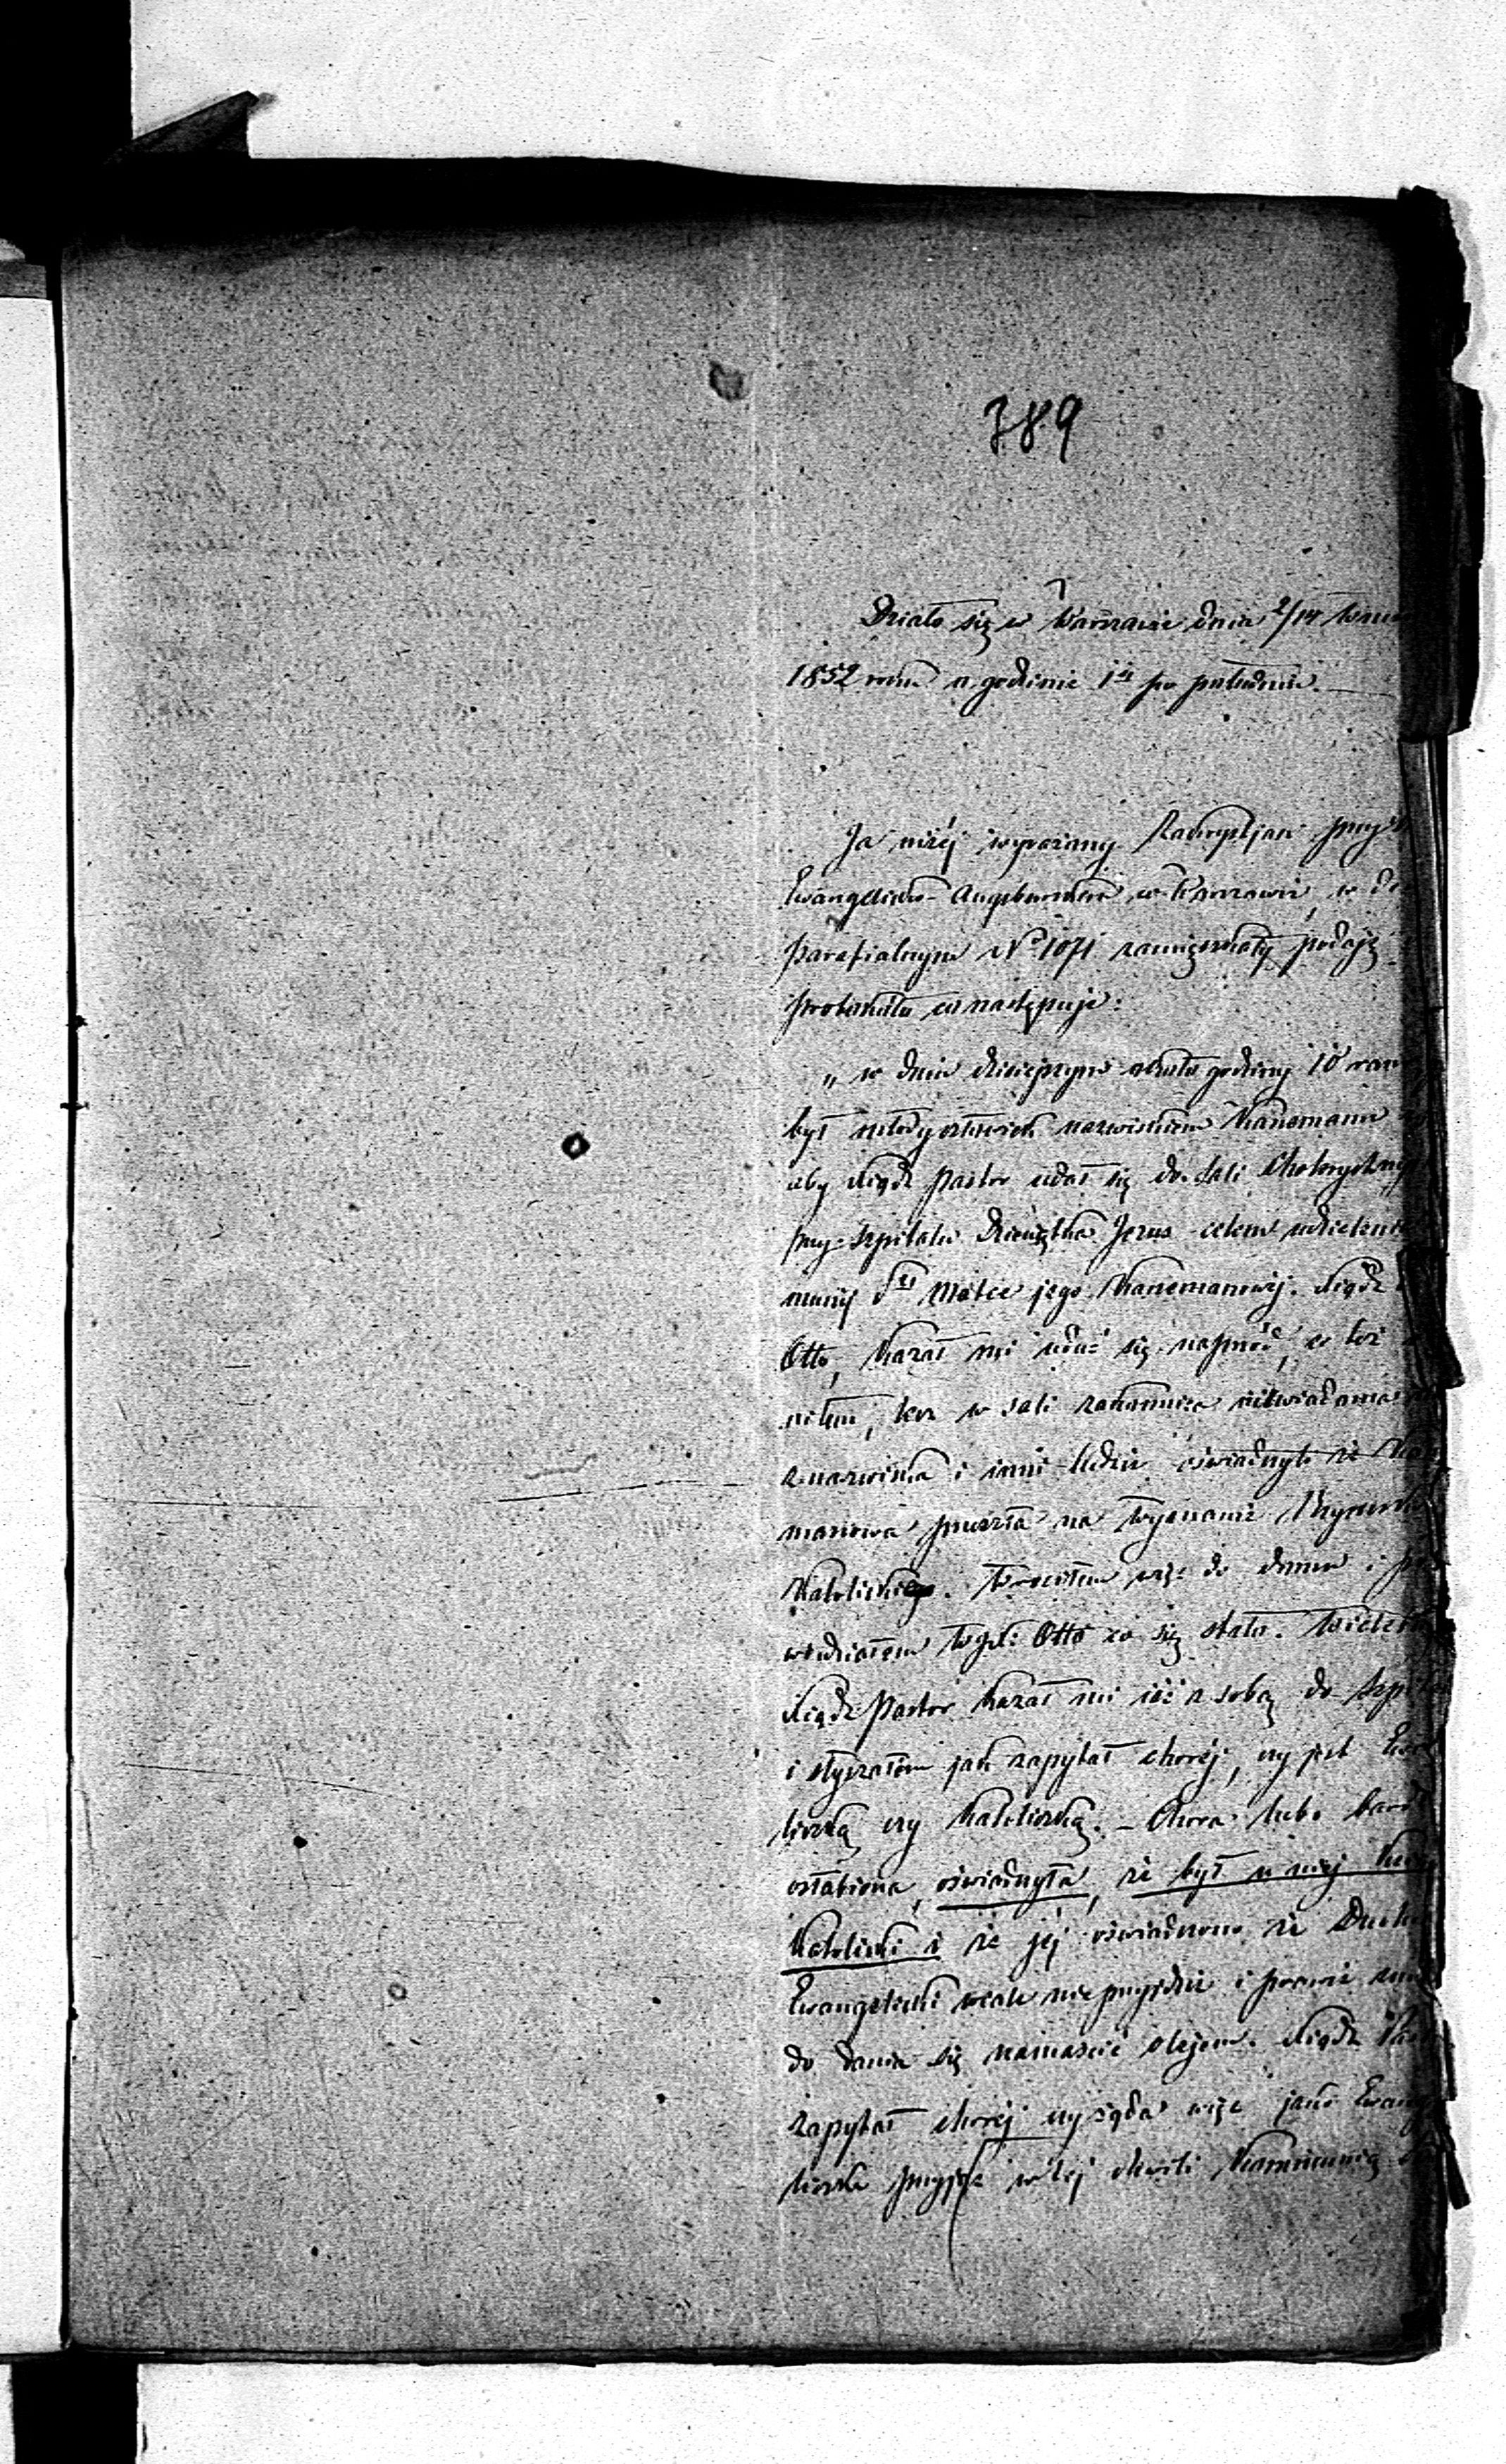 389
Działo się w Warszawie dnia 2/14
1852 roku o godzinie 1ej po południu.
Ja niżej wyrażony Zakrystjan przy
Ewangelicko-Augsburskim w Warszawie, w
parafialnym No 1071 zamieszkały podaję
protokułu co następuje:
„w dniu dzisiejszym około godziny 10
był młody człowiek nazwiskiem Kanemann
aby Ksiądz pastor udał się do Sali Cholerycznej
przy Szpitalu Dzieciątka Jezus celem
munij Stej Matce jego Kanemanowej. Ksiądz
Otto, kazał mi udać się naprzód, co też
niłem, lecz w sali zakonnica niewiadoma
z nazwiska i inni ludzie oświadczyli że
manowa przeszła na Wyznanie Rzymsko
Katolickie. Wróciłem więc do domu i
wiedziałem Wgd: Otto co się stało.
Ksiądz Pastor kazał mi iść z sobą do
i słyszałem jak zapytał chorej, czy jest
liczką czy Katoliczką. – Chora lubo
osłabiona, oświadczyła, że był u niej
Katolicki i że jej oświadczono że
Ewangelicki wcale nie przyjdzie i prawie
do dania się namaścić olejem. Ksiądz
zapytał chorej czy żąda więc jako
liczka przyjąć w tej chwili Kommunię